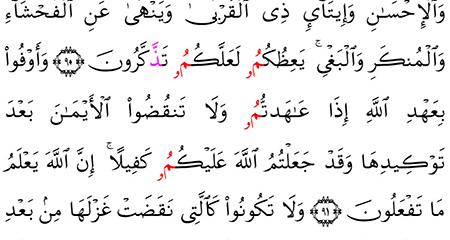 وَٱلۡإِحۡسَٰنِ وَإِيتَآيِٕ ذِي ٱلۡقُرۡبَىٰ وَيَنۡهَىٰ عَنِ ٱلۡفَحۡشَآءِ
وَٱلۡمُنكَرِ وَٱلۡبَغۡيِۚ يَعِظُكُمُۥ لَعَلَّكُمُۥ تَذَّكَّرُونَ ۝٩٠ وَأَوۡفُواْ
بِعَهۡدِ ٱللَّهِ إِذَا عَٰهَدتُّمُۥ وَلَا تَنقُضُواْ ٱلۡأَيۡمَٰنَ بَعۡدَ
تَوۡكِيدِهَا وَقَدۡ جَعَلۡتُمُ ٱللَّهَ عَلَيۡكُمُۥ كَفِيلًاۚ إِنَّ ٱللَّهَ يَعۡلَمُ
مَا تَفۡعَلُونَ ۝٩١ وَلَا تَكُونُواْ كَٱلَّتِي نَقَضَتۡ غَزۡلَهَا مِنۢ بَعۡدِ